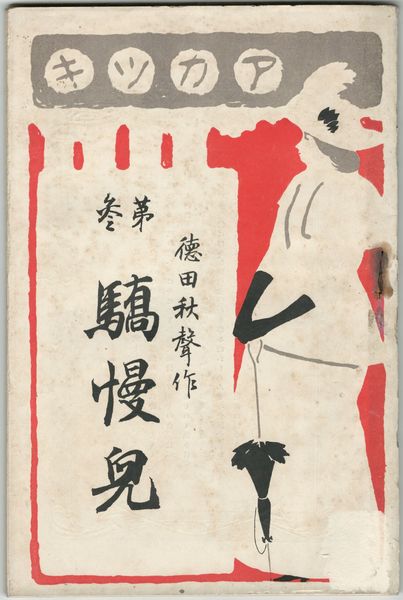 アカツキ
德田秋聲作
第参
驕慢兒